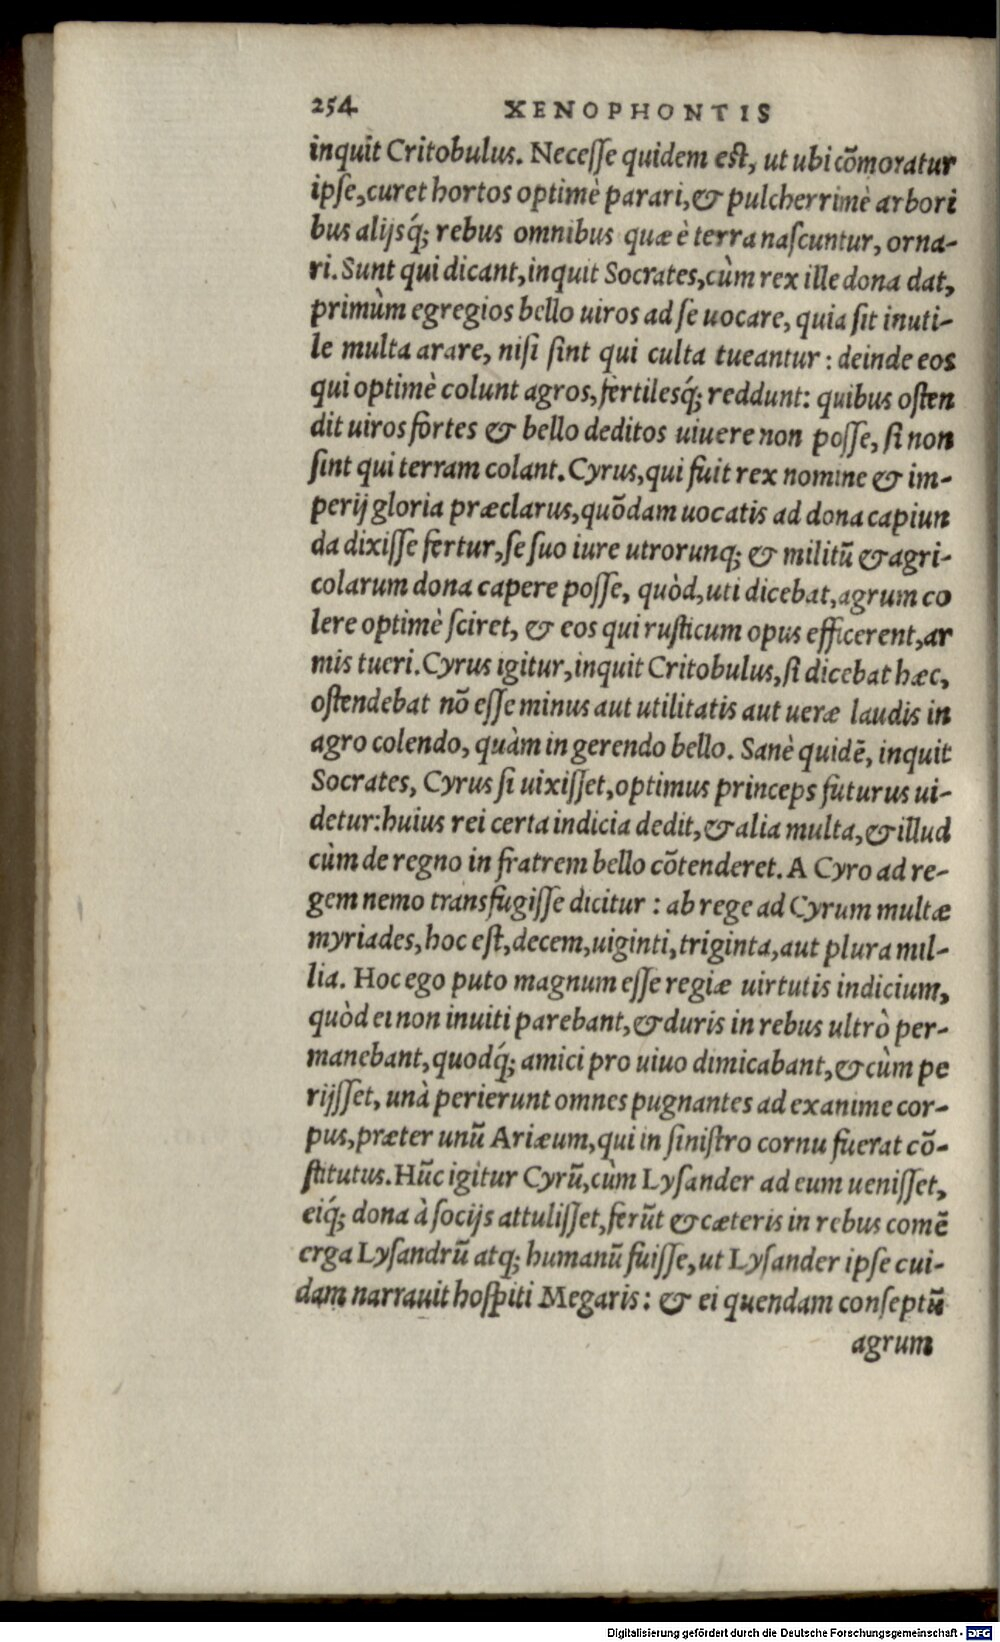 254 XENOPHONTIS
inquit Critobulus. Necesse quidem est, ut ubi cōmoratur
ipse, curet hortos optimè parari, & pulcherrimè arbori
bus alijsq́; rebus omnibus quæ è terra nascuntur, orna-
ri. Sunt qui dicant, inquit Socrates, cùm rex ille dona dat,
primùm egregios bello uiros ad se uocare, quia sit inuti-
le multa arare, nisi sint qui culta tueantur: deinde eos
qui optimè colunt agros, fertilesq́; reddunt: quibus osten
dit uiros fortes & bello deditos uiuere non posse, si non
sint qui terram colant. Cyrus, qui fuit rex nomine & im-
perij gloria præclarus, quōdam uocatis ad dona capiun
da dixisse fertur, se suo iure utrorunq; & militū & agri-
colarum dona capere posse, quòd, uti dicebat, agrum co
lere optimè sciret, & eos qui rusticum opus efficerent, ar
mis tueri. Cyrus igitur, inquit Critobulus, si dicebat hæc,
ostendebat nō esse minus aut utilitatis aut ueræ laudis in
agro colendo, quàm in gerendo bello. Sanè quidē, inquit
Socrates, Cyrus si uixisset, optimus princeps futurus ui-
detur: huius rei certa indicia dedit, & alia multa, & illud
cùm de regno in fratrem bello cōtenderet. A Cyro ad re-
gem nemo transfugisse dicitur: ab rege ad Cyrum multæ
myriades, hoc est, decem, uiginti, triginta, aut plura mil-
lia. Hoc ego puto magnum esse regiæ uirtutis indicium,
quòd ei non inuiti parebant, & duris in rebus ultrò per-
manebant, quodq́; amici pro uiuo dimicabant, & cùm pe
rijsset, unà perierunt omnes pugnantes ad exanime cor-
pus, præter unū Ariæum, qui in sinistro cornu fuerat cō-
stitutus. Hūc igitur Cyrū, cùm Lysander ad eum uenisset,
eiq́; dona à socijs attulisset, ferūt & cæteris in rebus comē
erga Lysandrū atq; humanū fuisse, ut Lysander ipse cui-
dam narrauit hospiti Megaris: & ei quendam conseptū
agrum
Digitalisierung gefördert durch die Deutsche Forschungsgemeinschaft - DFG